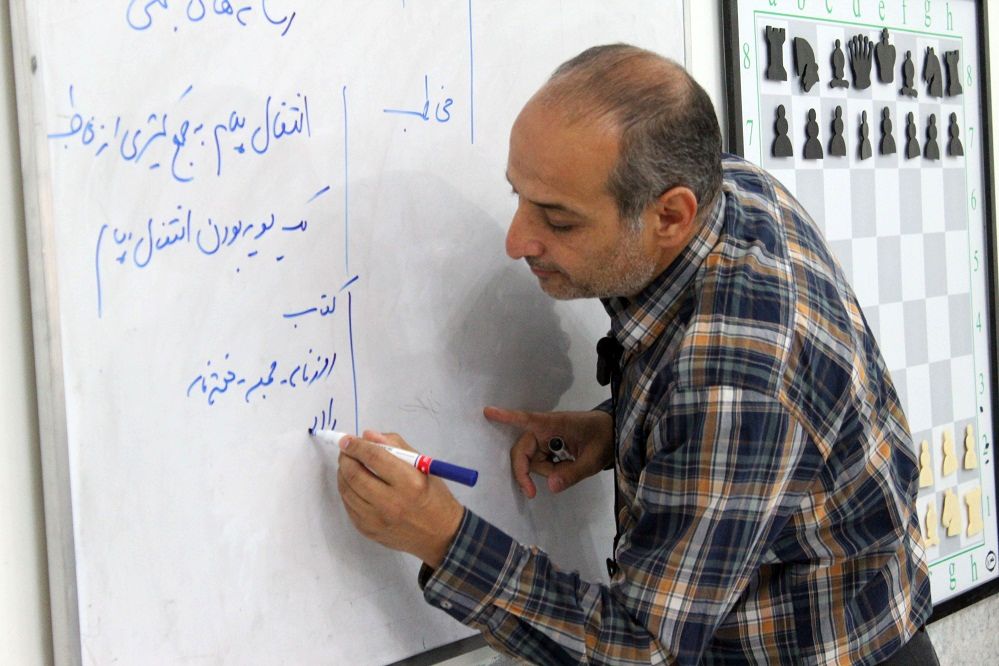 رسانه‌های جمعی
مخاطب
انتقال پیام به جمع کثیری از مخاطب
یک سویه بودن انتقال پیام
کتاب
روزنامه - مجله - هفته‌نامه
رادیو
a b c d e f g h
8
8
7
7
6
5
4
3
2
1
g h